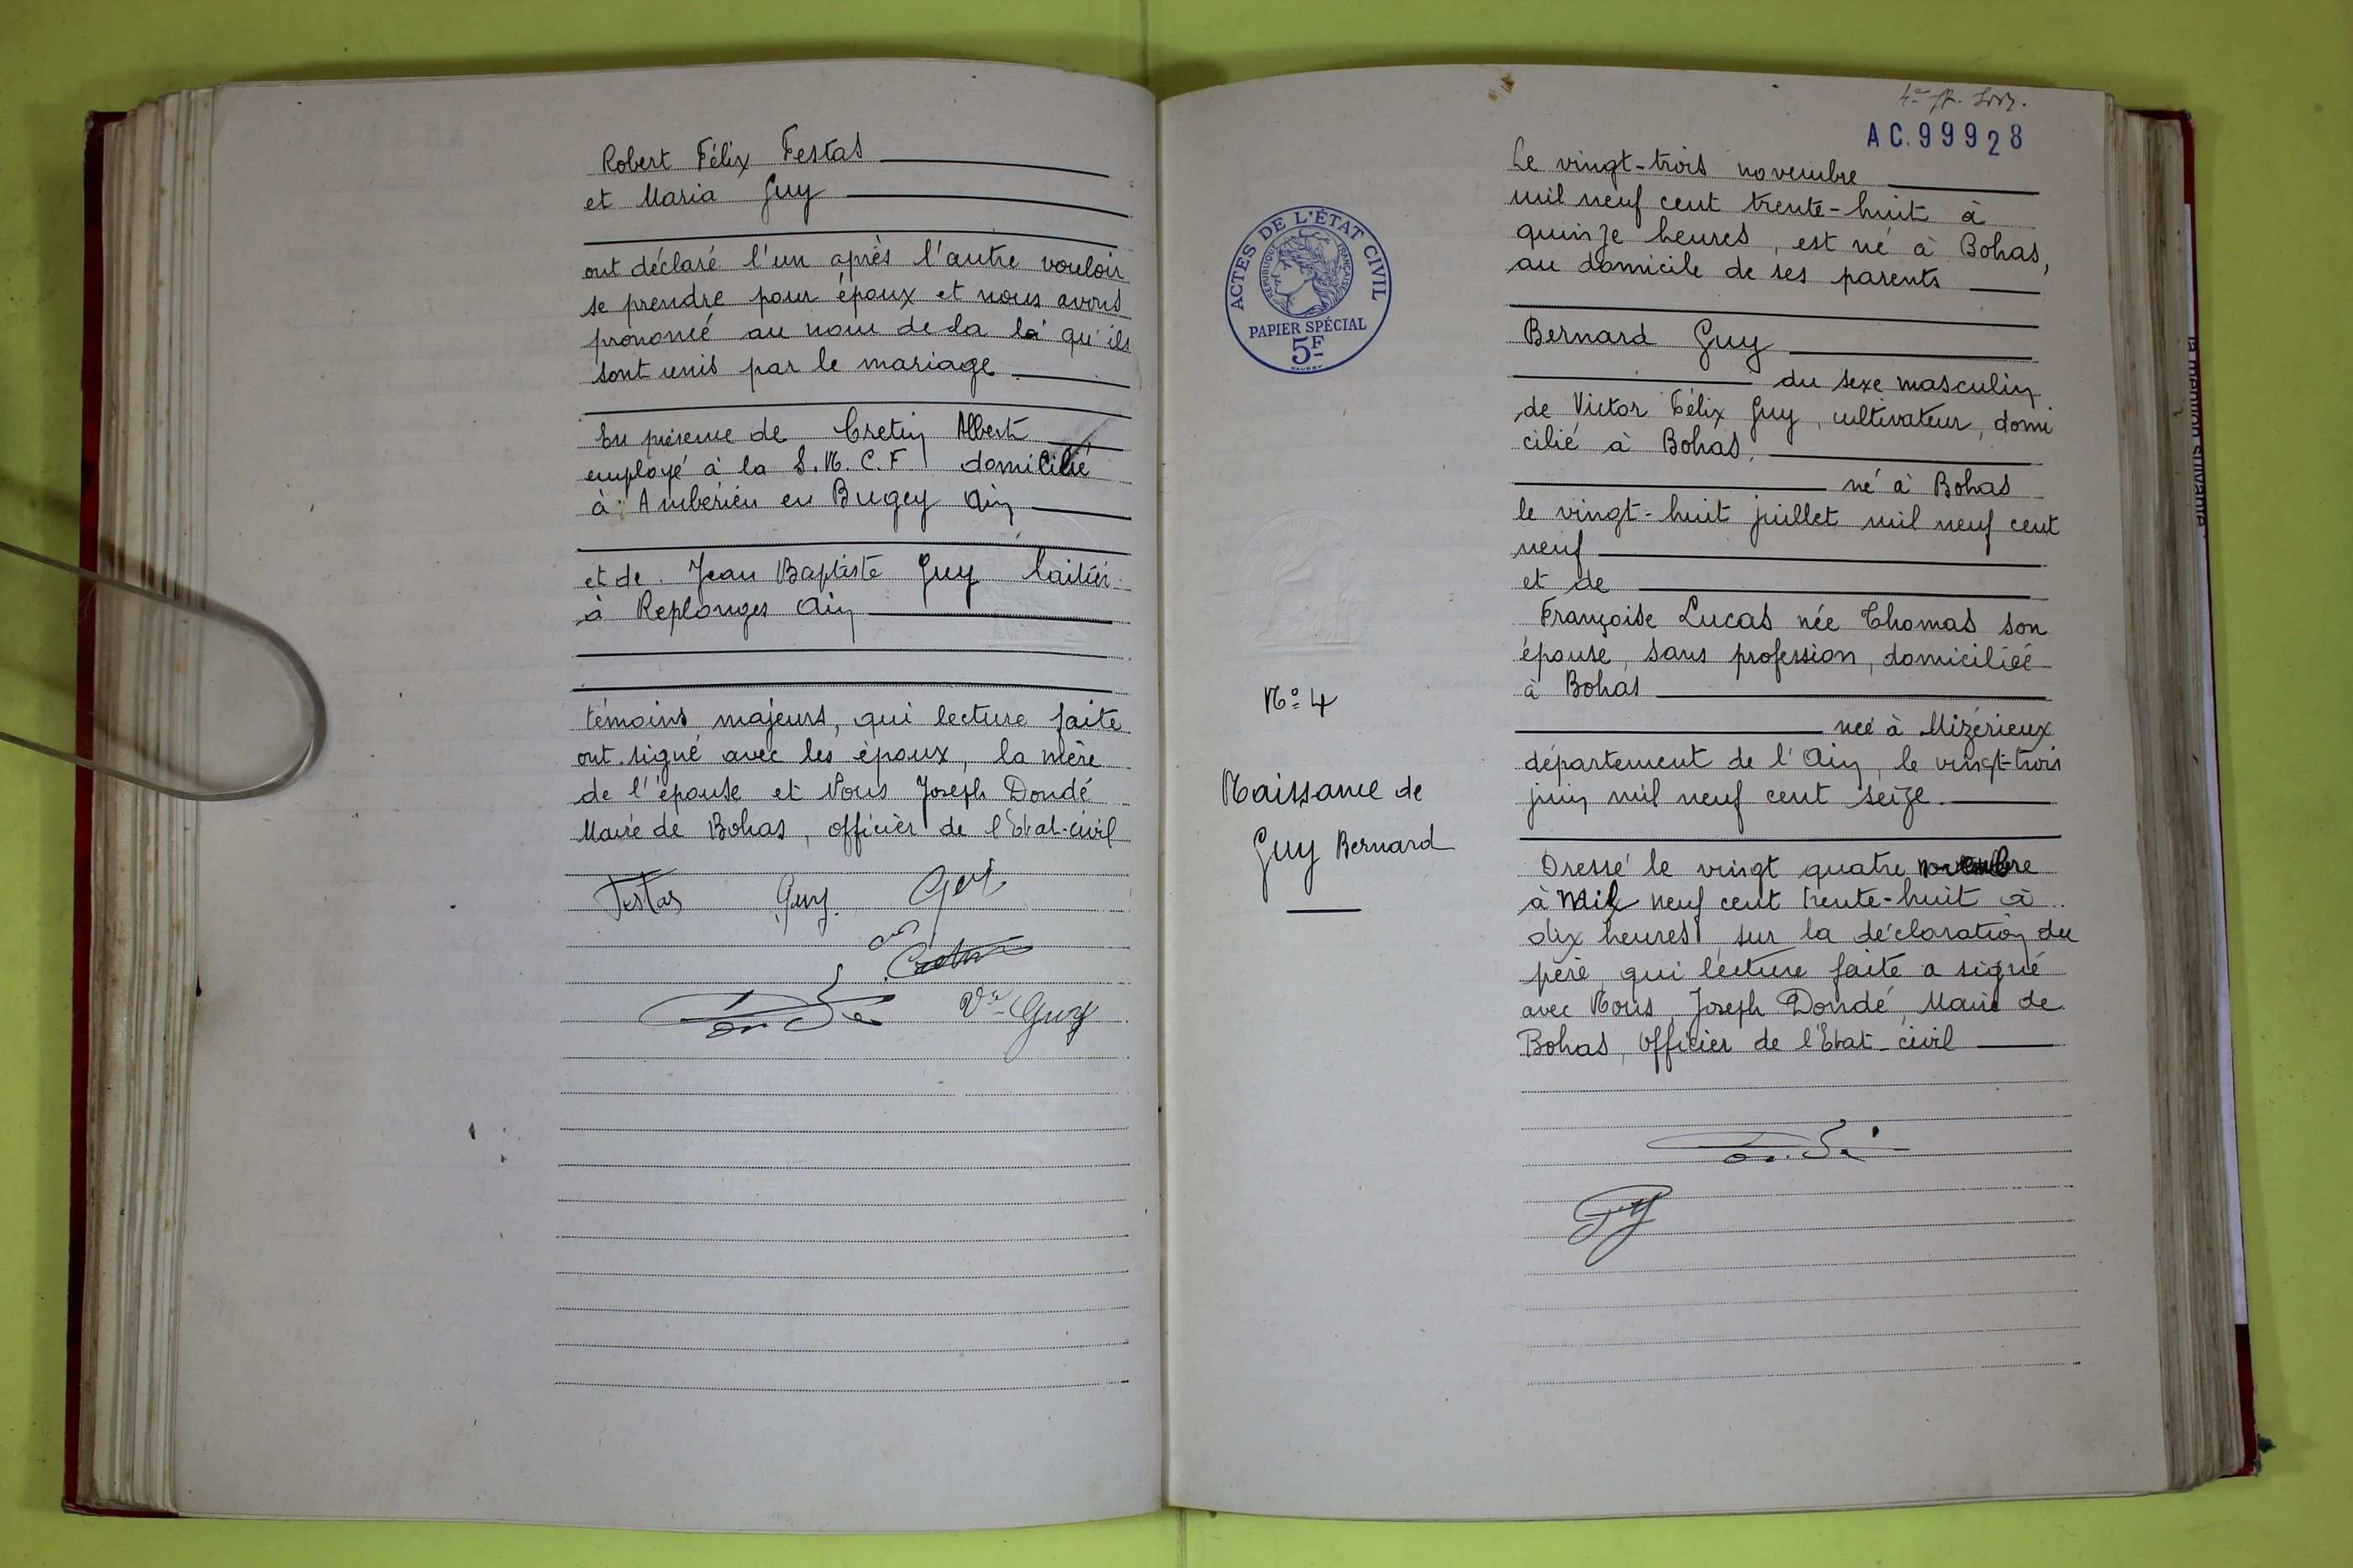 Robert Félix Festas
et Maria Guy
ont déclaré l'un après l'autre vouloir
se prendre pour époux et nous avons
prononcé au nom de la loi qu'ils
sont unis par le mariage
En présence de Cretin Albert
employé à la S.N.C.F domicilié
à Ambérieu en Bugey Ain
et de Jean Baptiste Guy laitier
à Replonges Ain
témoins majeurs, qui lecture faite
ont signé avec les époux, la mère
de l'épouse et Nous Joseph Dondé
Maire de Bohas, officier de l'Etat-civil
Festas Guy Guy
Cretin
Dondé Vve Guy
AC.99928
ACTES DE L'ÉTAT CIVIL
RÉPUBLIQUE FRANÇAISE
PAPIER SPÉCIAL
5F
N° 4
Naissance de
Guy Bernard
Le vingt-trois novembre
mil neuf cent trente-huit à
quinze heures, est né à Bohas,
au domicile de ses parents
Bernard Guy
du sexe masculin
de Victor Félix Guy, cultivateur, domi
cilié à Bohas,
né à Bohas
le vingt-huit juillet mil neuf cent
neuf
et de
Françoise Lucas née Thomas son
épouse, sans profession, domiciliée
à Bohas
née à Mizérieux
département de l'Ain, le vingt-trois
juin mil neuf cent seize.
Dressé le vingt quatre novembre
à mil neuf cent trente-huit à
dix heures sur la déclaration du
père qui lecture faite a signé
avec Nous, Joseph Dondé, Maire de
Bohas, Officier de l'Etat-civil
Dondé
Guy